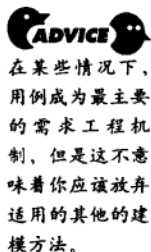 ADVICE
在某些情况下，
用例成为最主要
的需求工程机
制，但是这不意
味着你应该放弃
适用的其他的建
模方法。